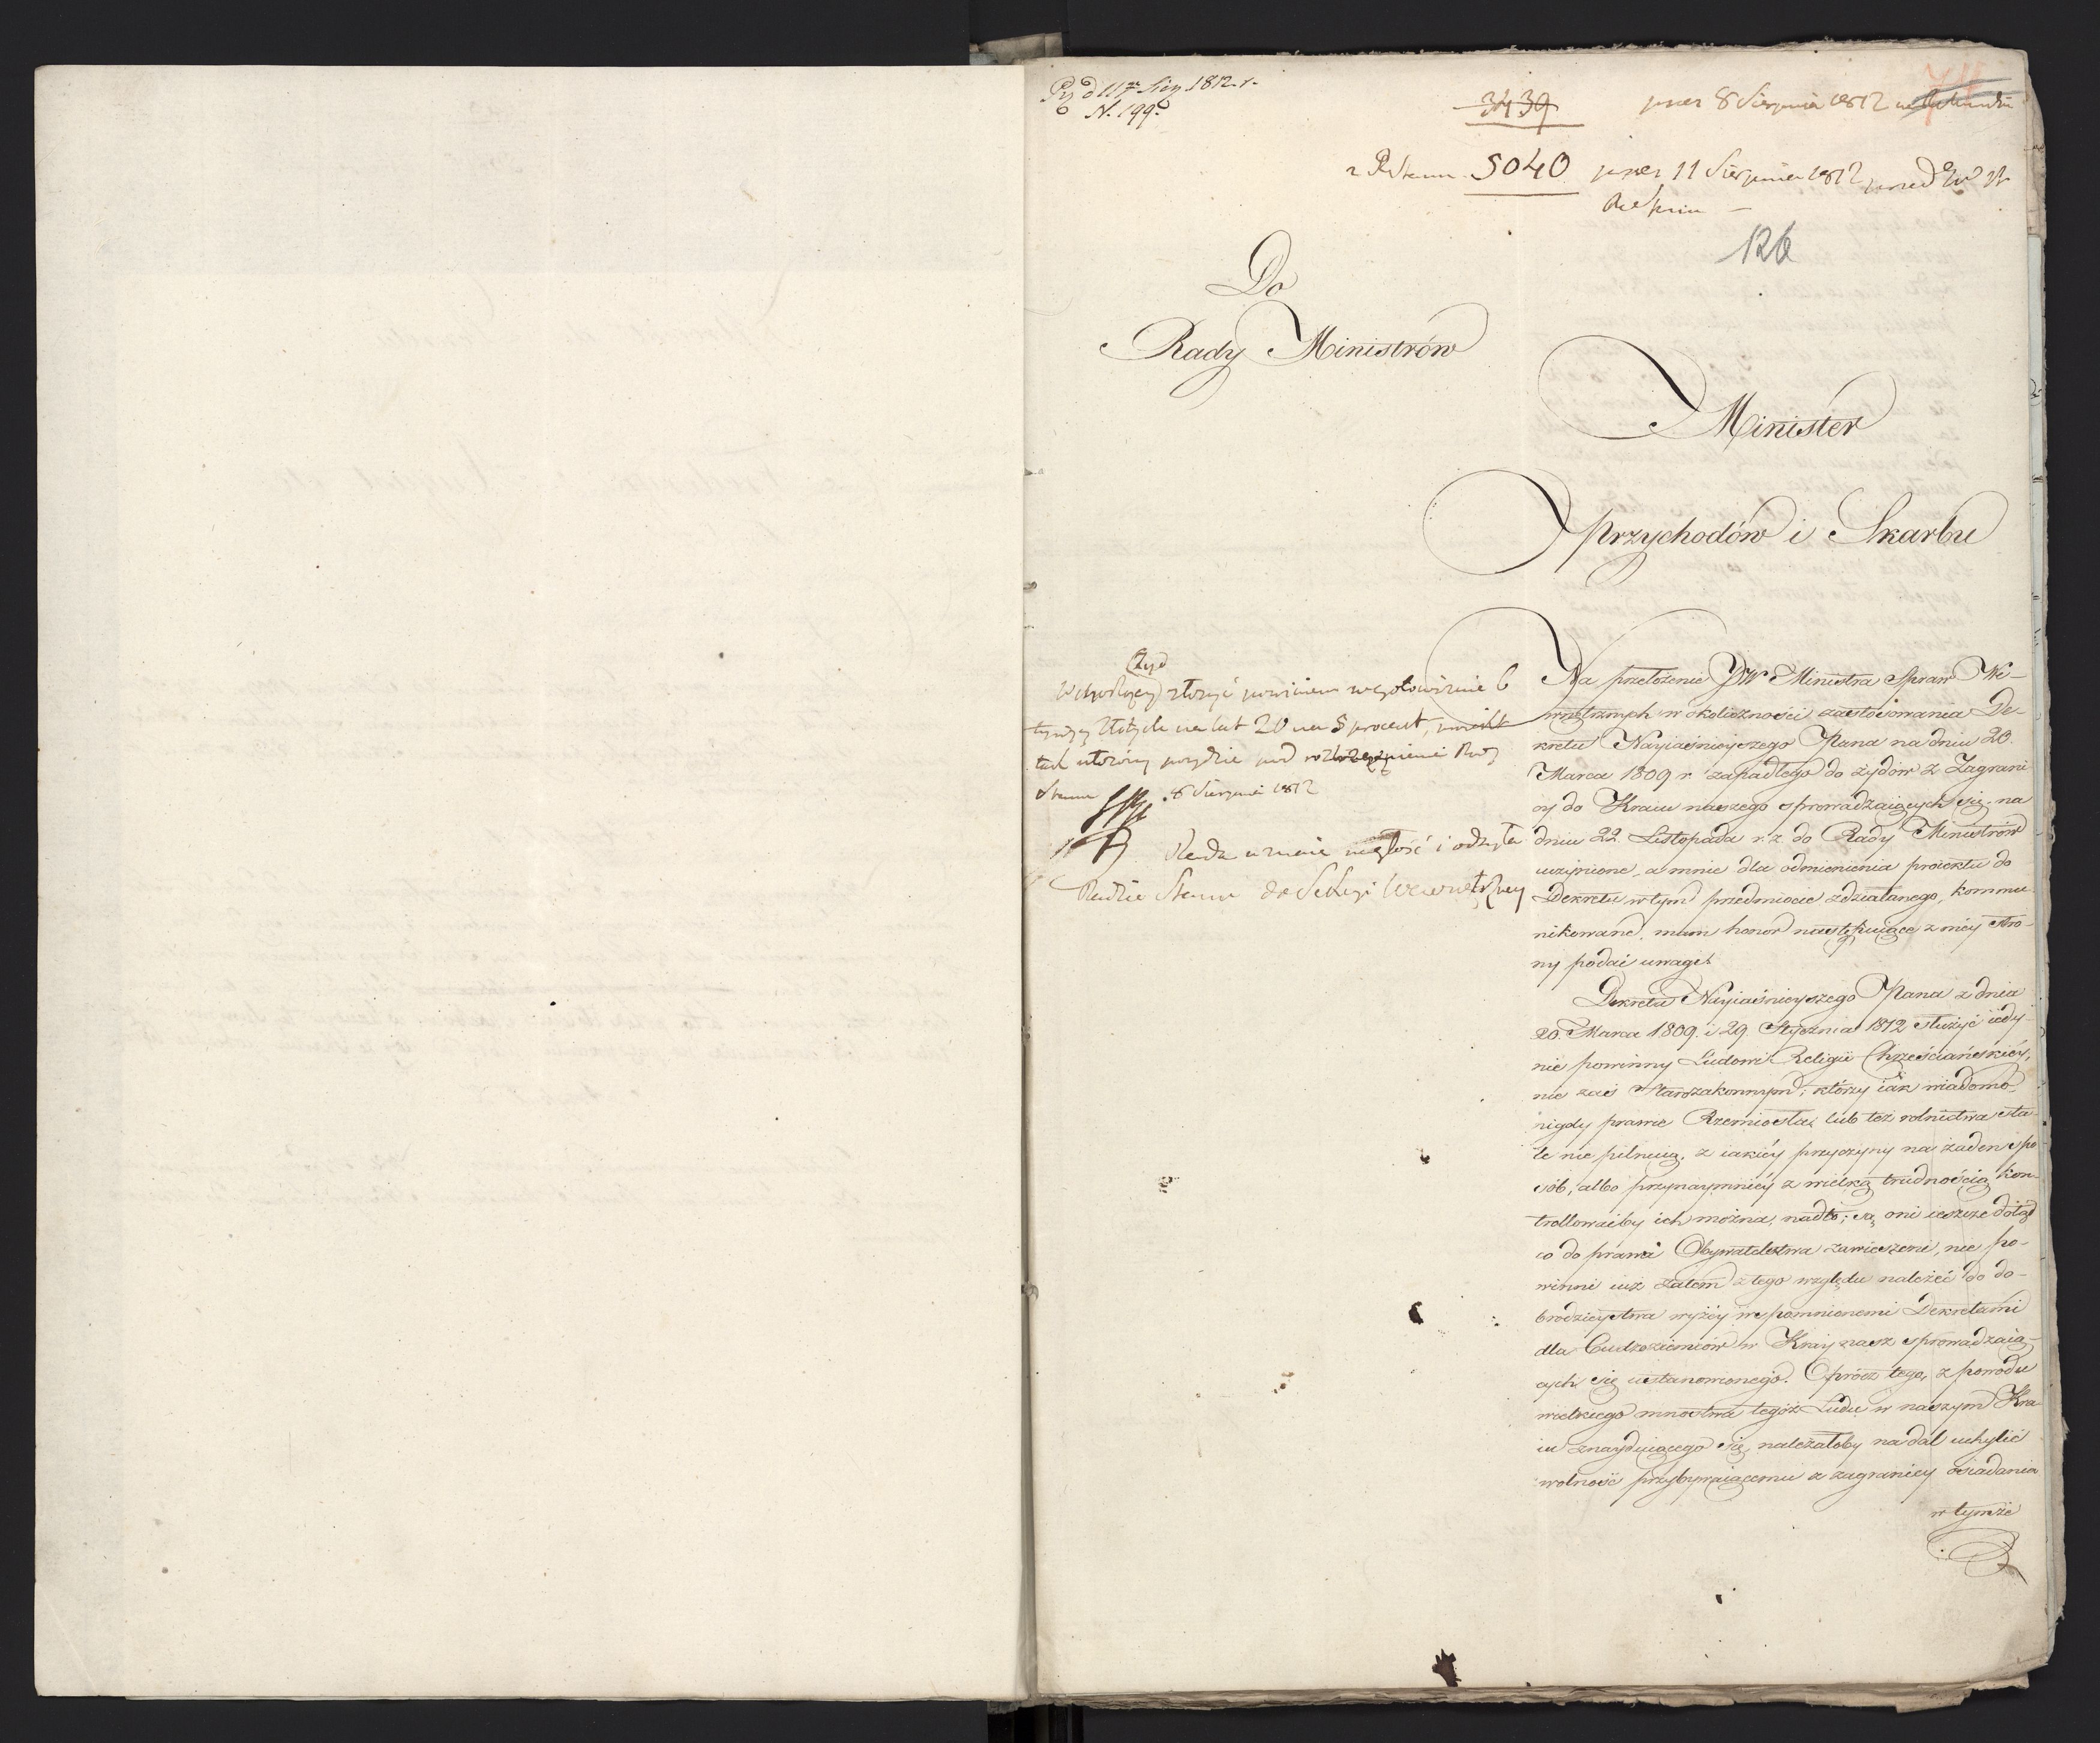 N. 199.
3439
8 Sierpnia 1812
5040 11 Sierpnia 1812
126
Do
Rady Ministrów
Minister
Przychodów i Skarbu
Żyd
złożyć powinien
Złotych na lat 20 na 5 procent,
tak ułożony poydzie pod Rady
Stanu 8 Sierpnia 1812
Rada uznaie nagłość i odsyła
Radzie Stanu do Sekcyi Wewnętrzney
Na przełożenie JW Ministra Spraw We-
wnętrznych w okoliczności zastosowania De-
kretu Nayiaśnieyszego Pana na dniu 20.
Marca 1809 r. zapadłego do żydów z Zagrani-
cy do Kraiu naszego sprowadzaiących się, na
dniu 22. Listopada r. z. do Rady Ministrów
uczynione, a mnie dla odmienienia proiektu do
Dekretu w tym przedmiocie zdziałanego, kommu-
nikowane, mam honor następuiące z méy stro-
ny podać uwagi.
Dekreta Nayiaśnieyszego Pana z dnia
20. Marca 1809. i 29 Stycznia 1812 służyć iedy-
nie powinny Ludowi Religii Chrześciańskiéy,
nie zaś Starozakonnym; którzy iak wiadomo
nigdy prawie Rzemiosła, lub też rolnictwa sta-
le nie pilnuią, z iakiéy przyczyny na żaden spo-
sób, albo przynaymniéy z wielką trudnością kon-
trollowaćby ich można, nadto; są oni ieszcze dotąd
co do prawa Obywatelstwa zawieszeni, nie po-
winni iuż zatem z tego względu należeć do do-
brodzieystwa wyżéy wspomnionemi Dekretami
dla Cudzoziemców w Kray nasz sprowadzaią-
cych się ustanowionego. Oprócz tego, z powodu
wielkiego mnóstwa tegoż Ludu w naszym Kra-
iu znayduiącego się, należałoby nadal uchylić
wolność przybywaiącemu z zagranicy osiadania
w tymże